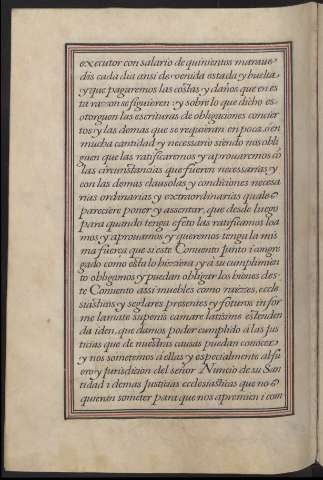 executor con salario de quinientos maraue
dis cada dia ansi de venida estada y buelta
y que pagaremos las costas y daños que en es
ta razon se siguieren : y sobre lo que dicho es
otorguen las escrituras de obligaciones concier
tos y las demas que se requieran en poca o en
mucha cantidad y necessario siendo nos obli
guen que las ratificaremos y aprouaremos cō
las circunstancias que fueren necessarias y
con las demas clausolas y condiciones necesa
rias ordinarias y extraordinarias quales
pareciere poner y assentar, que desde luego
para quando tenga efeto las ratificamos loa
mos y aprouamos y queremos tenga la mis
ma fuerça que si este Conuento junto i congre
gado como esta lo hiziera y a su cumplimien
to obligamos y puedan obligar los bienes des
te Conuento assi muebles como raezes, eccle
siasticos y seglares presentes y foturos in for
me lamate supenis camare latissime estenden
da iden, que damos poder cumplido á las jus
ticias que de nuestras causas puedan conocer
y nos sometemos á ellas y especialmente al fu
ero y jurisdizion del señor Nuncio de su San
tidad i demas Justicias ecclesiasticas que nos
quieran someter para que nos apremien i com